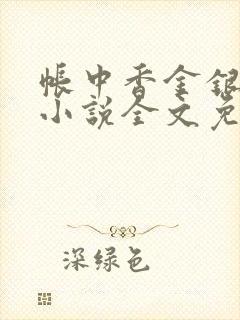 帳中香金銀
小說全文免
深绿色